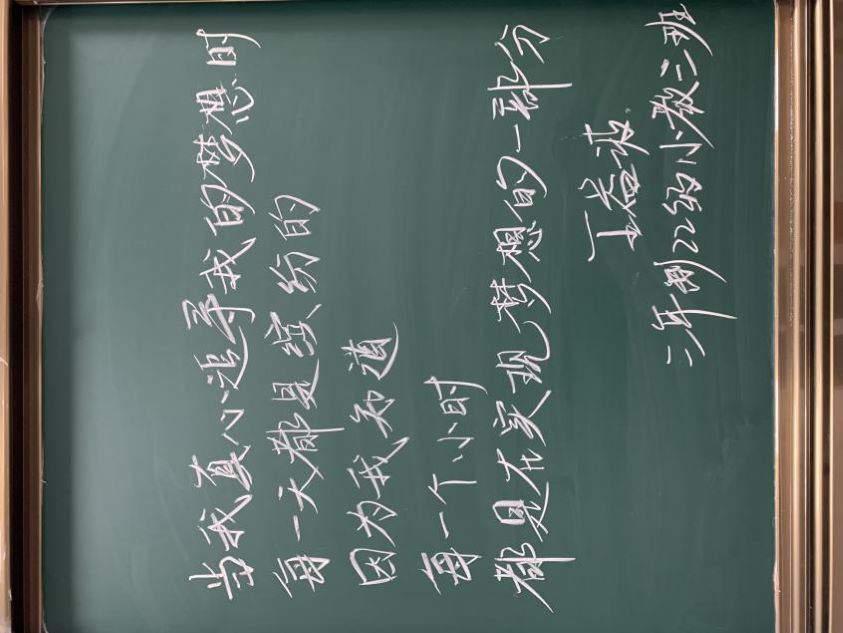 当我真心追寻我的梦想时
每一天都是缤纷的
因为我知道
每一个小时
都是在实现梦想的一部分
三年制22级小教三班